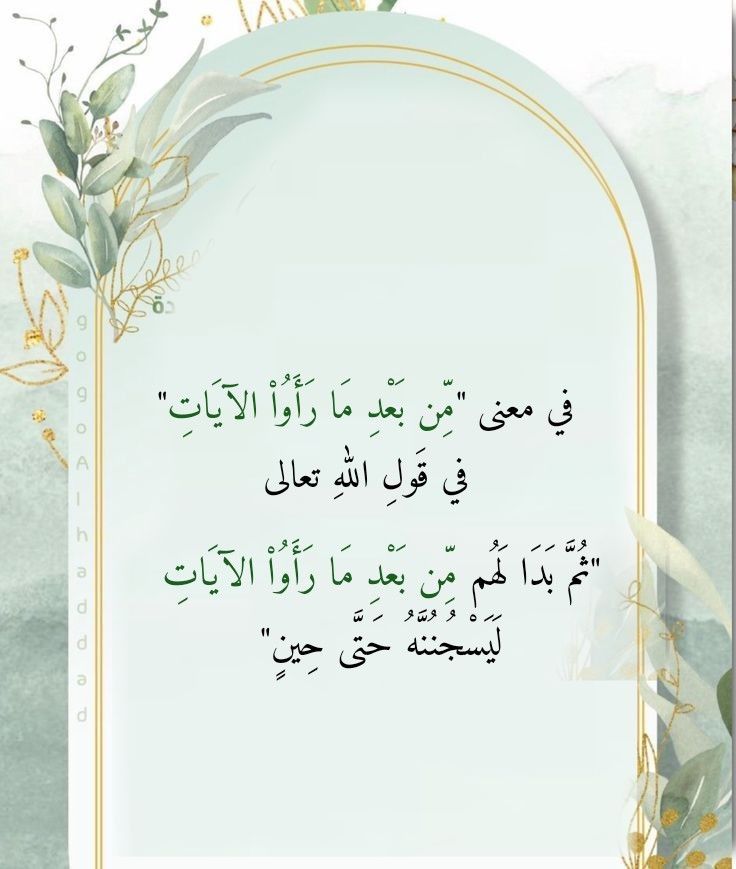 دة
في معنى "مِّن بَعْدِ مَا رَأَوُاْ الآيَاتِ"
في قَولِ اللهِ تعالى
"ثُمَّ بَدَا لَهُم مِّن بَعْدِ مَا رَأَوُاْ الآيَاتِ
لَيَسْجُنُنَّهُ حَتَّى حِينٍ"
gogoAlhaddad